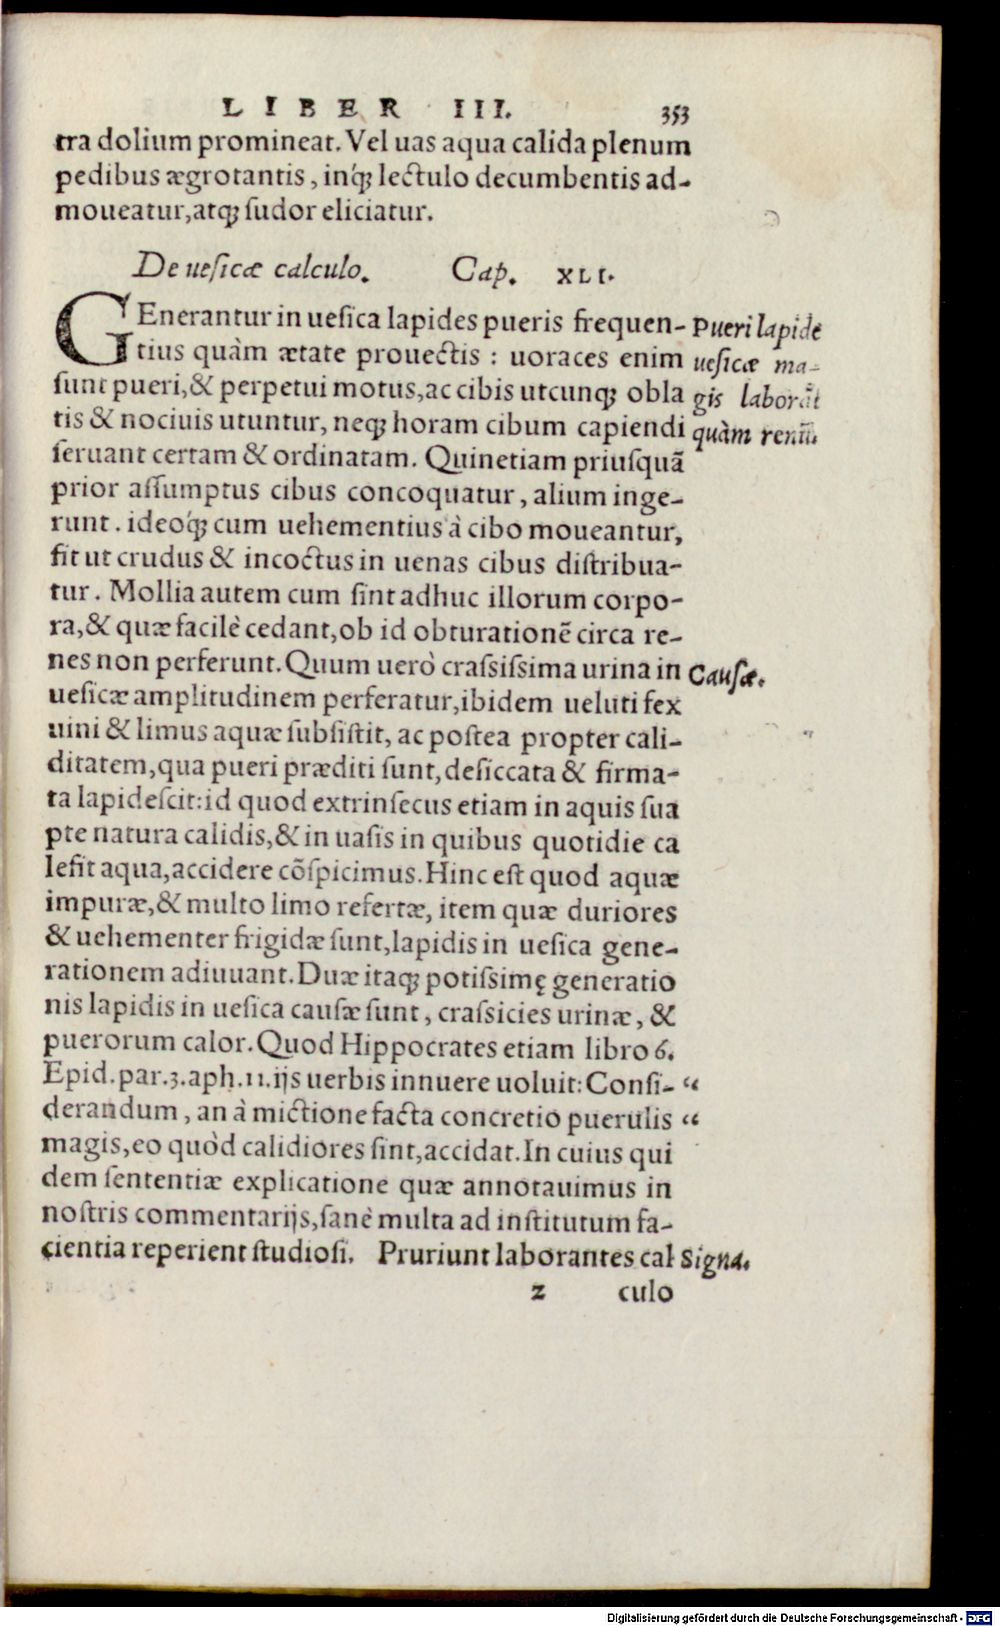 LIBER III. 353
tra dolium promineat. Vel uas aqua calida plenum
pedibus ægrotantis, inq́ꝫ lectulo decumbentis ad-
moueatur, atqꝫ ſudor eliciatur.
De ueſicæ calculo. Cap. XLI.
GEnerantur in ueſica lapides pueris frequen- Pueri lapidē
tius quàm ætate prouectis : uoraces enim ueſicæ ma-
ſunt pueri, & perpetui motus, ac cibis utcunqꝫ obla gis laborāt
tis & nociuis utuntur, neqꝫ horam cibum capiendi quàm renū.
ſeruant certam & ordinatam. Quinetiam priuſquā
prior aſſumptus cibus concoquatur, alium inge-
runt. ideoq́ꝫ cum uehementius à cibo moueantur,
fit ut crudus & incoctus in uenas cibus diſtribua-
tur. Mollia autem cum ſint adhuc illorum corpo-
ra, & quæ facilè cedant, ob id obturationē circa re-
nes non perferunt. Quum uerò craſsiſsima urina in Cauſæ.
ueſicæ amplitudinem perferatur, ibidem ueluti fex
uini & limus aquæ ſubſiſtit, ac poſtea propter cali-
ditatem, qua pueri præditi ſunt, deſiccata & firma-
ta lapideſcit: id quod extrinſecus etiam in aquis ſua
pte natura calidis, & in uaſis in quibus quotidie ca
lefit aqua, accidere cōſpicimus. Hinc eſt quod aquæ
impuræ, & multo limo refertæ, item quæ duriores
& uehementer frigidæ ſunt, lapidis in ueſica gene-
rationem adiuuant. Duæ itaqꝫ potiſsimę generatio
nis lapidis in ueſica cauſæ ſunt, craſsicies urinæ, &
puerorum calor. Quod Hippocrates etiam libro 6.
Epid. par. 3. aph. 11. ijs uerbis innuere uoluit: Conſi- “
derandum, an à mictione facta concretio puerulis “
magis, eo quòd calidiores ſint, accidat. In cuius qui
dem ſententiæ explicatione quæ annotauimus in
noſtris commentarijs, ſanè multa ad inſtitutum fa-
cientia reperient ſtudioſi. Pruriunt laborantes cal Signa.
z culo
Digitalisierung gefördert durch die Deutsche Forschungsgemeinschaft - DFG